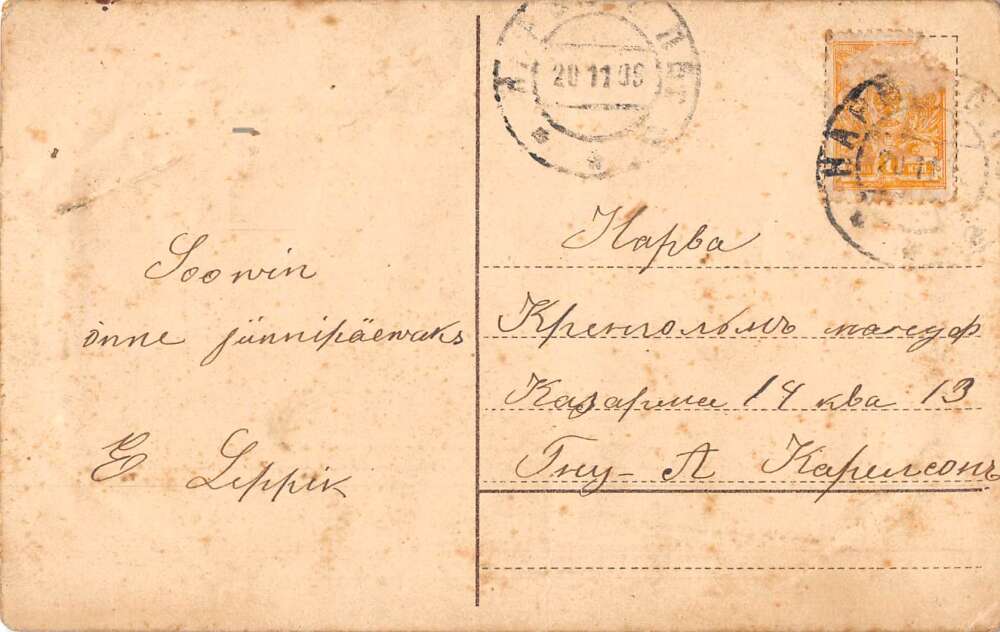 Soowin
õnne jünnipäewaks
E Leppik
20 11 09
Нарва
Кренгольмъ мануф
Казарма 14 ква 13
Гну - А Карелсонъ